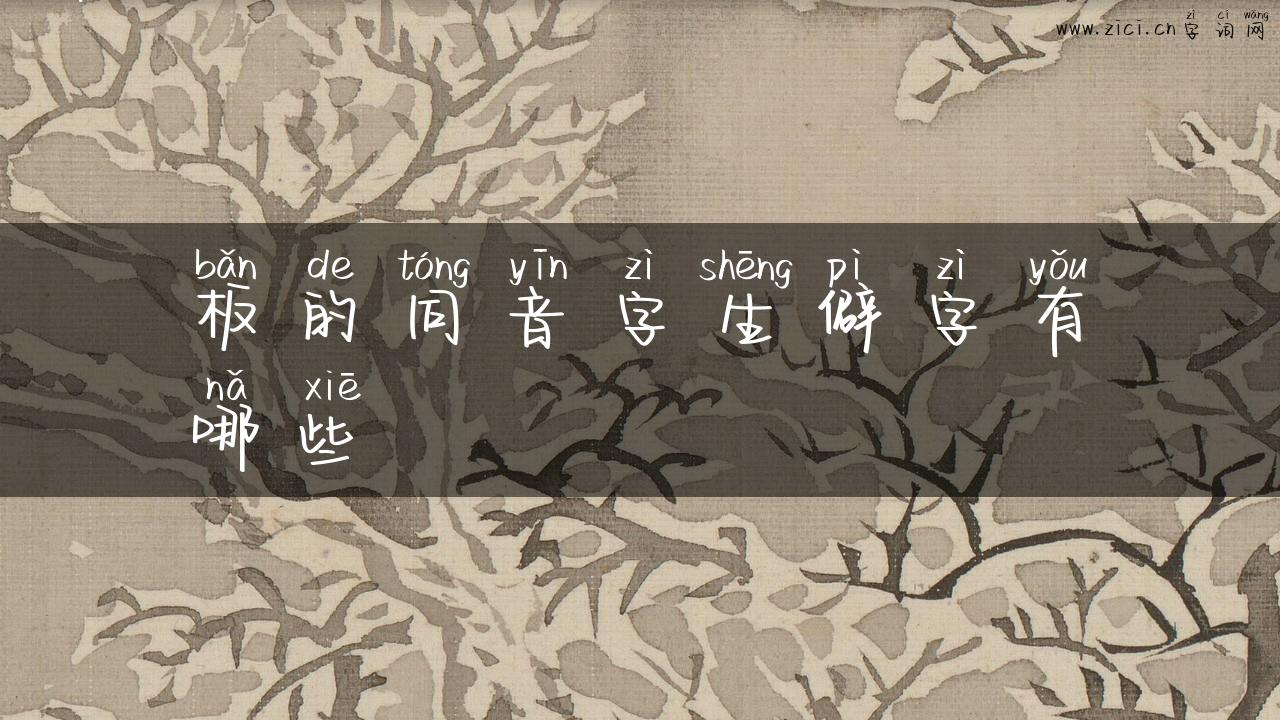 zì cí wǎng
www.zici.cn字词网
bǎn de tóng yīn zì shēng pì zì yǒu
板的同音字生僻字有
nǎ xiē
哪些